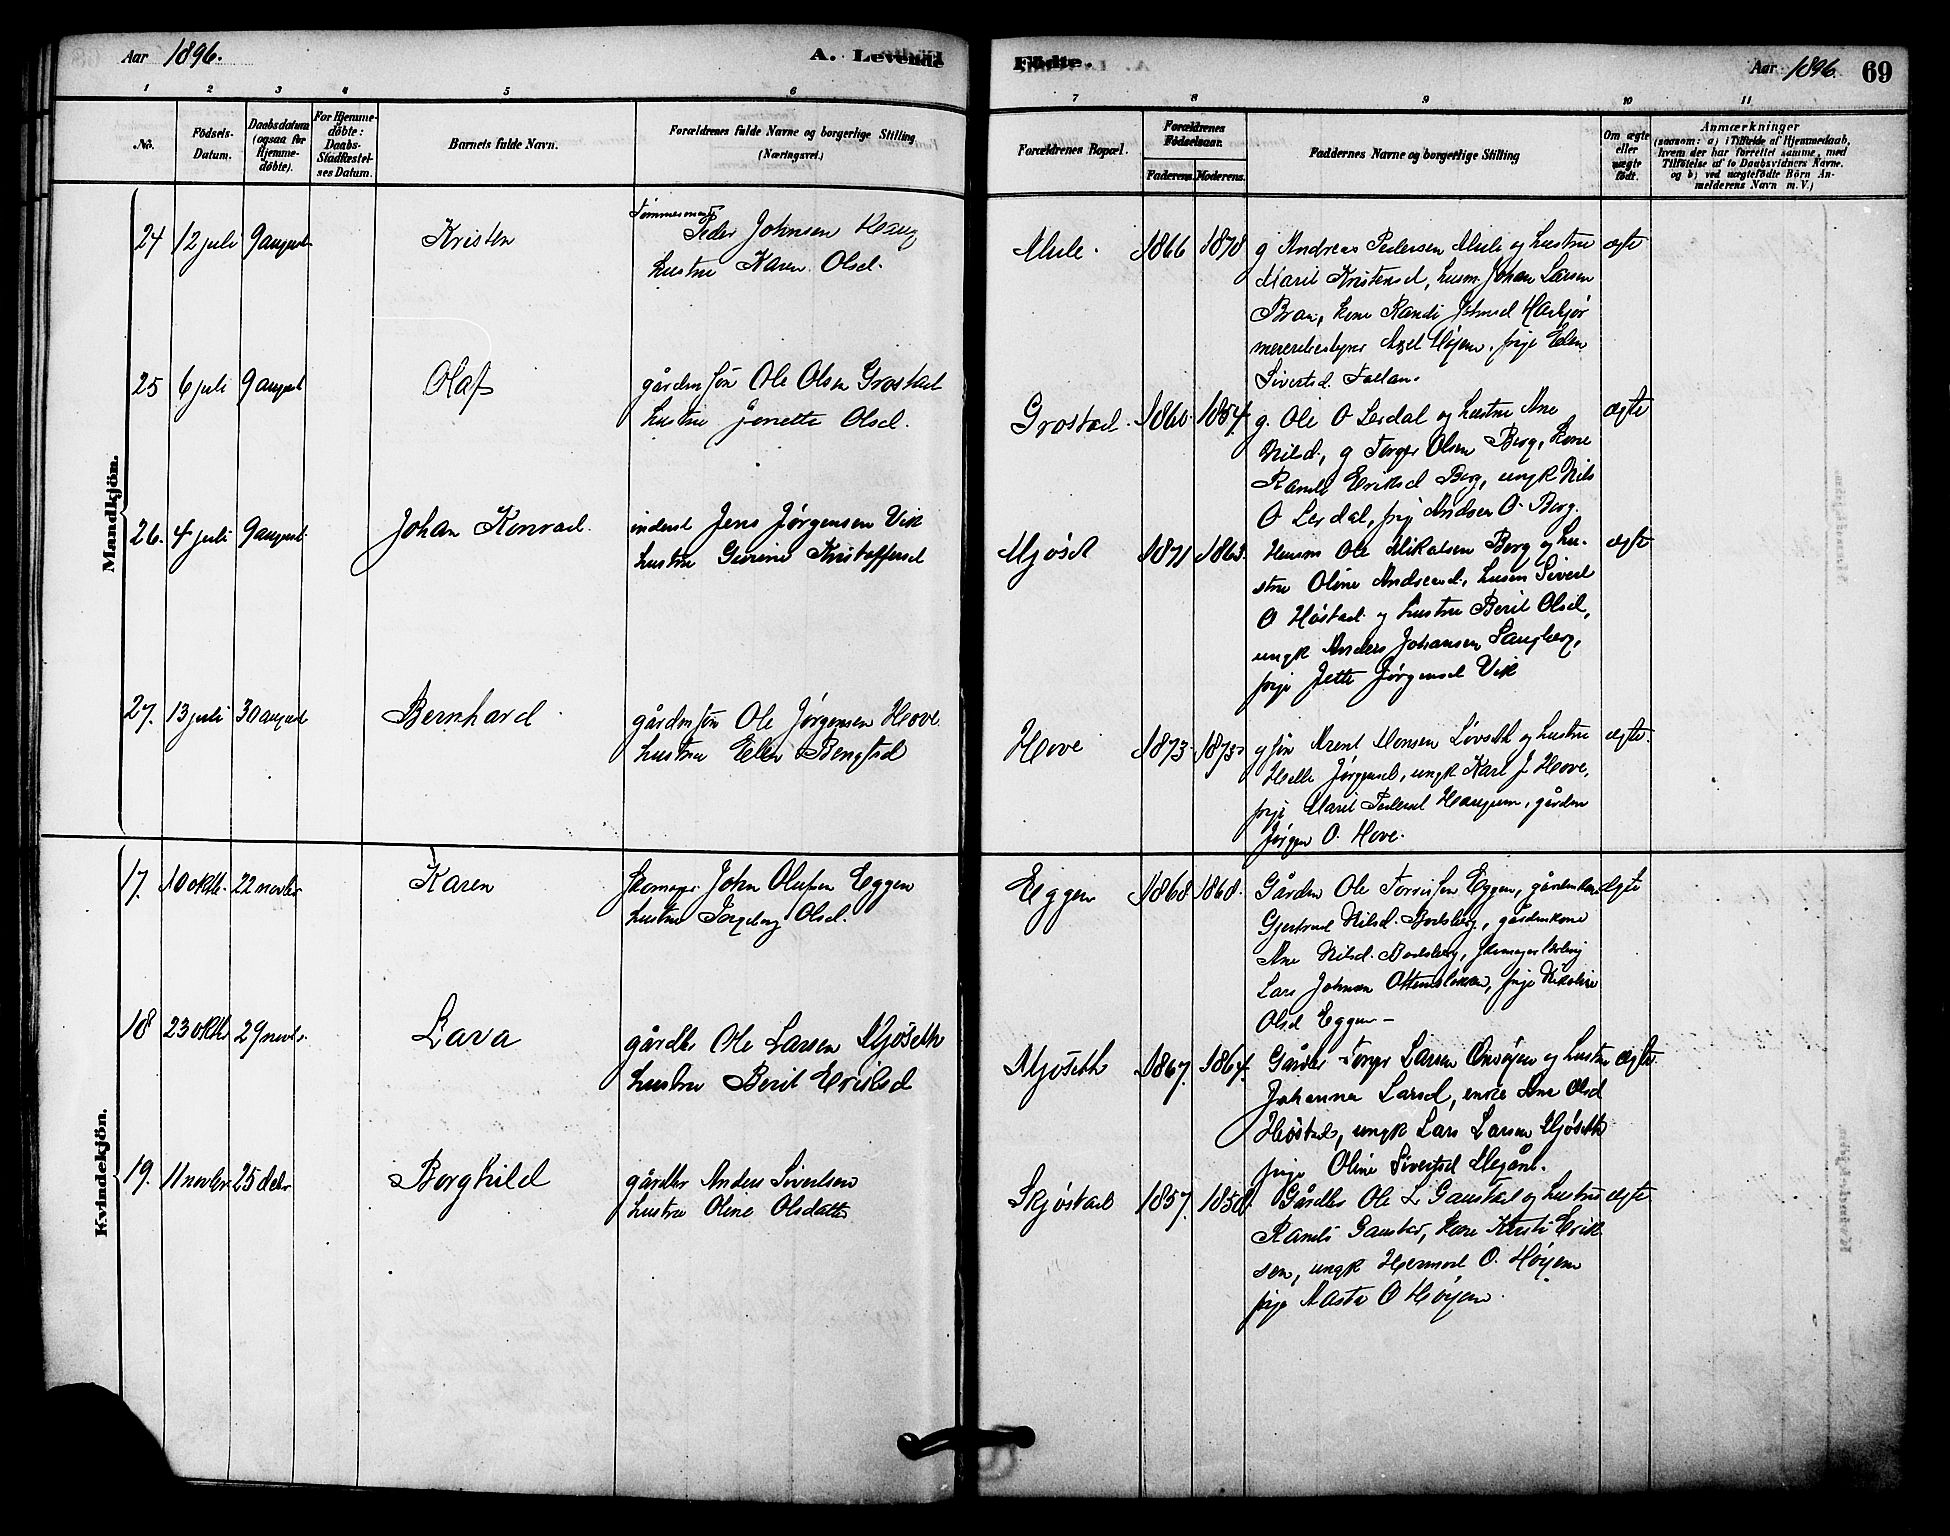 Aar 1896.
A. Levende
Fødte.
Aar 1896.
69
1 2 3 4 5 6 7 8 9 10 11
No.
Fødsels-
Datum.
Daabsdatum
(ogsaa for
Hjemme-
døbte).
For Hjemme-
døbte:
Daabs-
Stadfæstel-
ses Datum.
Barnets fulde Navn.
Forældrenes fulde Navne og borgerlige Stilling
(Næringsvei.)
Forældrenes Bopæl.
Forældrenes
Fødselsaar.
Faderens. Moderens.
Faddernes Navne og borgerlige Stilling
Om ægte
eller
uægte
født.
Anmærkninger
(saasom: a) i Tilfælde af Hjemmedaab,
hvem der har forrettet samme, med
Tilføielse af to Daabsvidners Navne.
og b) ved uægtefødte Børn An-
melderens Navn m. V.)
Mandkjön.
24 12 juli 9 august Kristen
Tømmermand
Peder Johnsen Haug
hustru Karen Olsd.
Mule. 1866 1878
g Andreas Pedersen Mule og hustru
Marit Kristensd, husm Johan Larsen
Braa, kone Randi Johnsd
meieribestyrer Axel Høyem. pige Elen
Sivertsd
ægte
25 6 juli 9 august Olaf
gårdm søn Ole Olsen Grostad
hustru Jonette Olsd.
Grostad. 1860. 1854.
g. Ole O Lerdal og hustru Ane
Nilsd, g Torger Olsen Berg, kone
Randi Eriksd Berg, ungk Nils
O Lerdal, pige O. Berg.
ægte
26. 4 juli 9 august Johan Konrad.
inderst Jens Jørgensen Vik
hustru Gurine Kristoffersd
Mjøset 1871 1863.
Husm Ole Mikalsen Berg og hu-
stru Oline Andreasd., husm Sivert
O Høstad og hustru Berit Olsd,
ungk Anders Johansen Saugberg,
pige Jette Jørgensd Vik
ægte
27. 13 juli 30 august Bernhard
gårdm søn Ole Jørgensen Hove
hustru Elen Bengtsd
Hove 1873 1873
g søn Arent Monsen Løvseth og hustru
Jørgensd, ungk Karl J Hove,
pige Marit Pedersd Haugum, gårdm
Jørgen O. Hove.
ægte.
Kvindekjön.
17. 10 oktb. 22 novbr Karen
skomager John Olufsen Eggen
hustru Ingeborg Olsd.
Eggen 1868 1868.
Gårdm Ole Eggen, gårdmkone
Gjertrud Nilsd. Bodsberg, gårdmkone
Ane Nilsd. Bodsberg, skomager
Lars Johnsen pige Nikoline
Olsd Eggen –
ægte
18 23 oktbr 29 novbr. Lava
gårdbr Ole Larsen Mjöseth
hustru Berit Eriksd
Mjöseth 1867. 1864.
Gårdbr Torger Larsen og hustru
Johanna Larsd, enke Ane Olsd
Høstad, ungk Lars Larsen Mjöseth
pige Oline Sivertsd
ægte.
19. 11 novbr. 25 debr Borghild
gårdbr Anders Sivertsen
hustru Oline Olsdatter
Skjöstad 1857. 1858
Gårdbr Ole L Gaustad og hustru
Randi Gaustad, kone Kirsti Erik-
sen, ungk Hermod O. Høyem
pige Marta O Høyem.
ægte